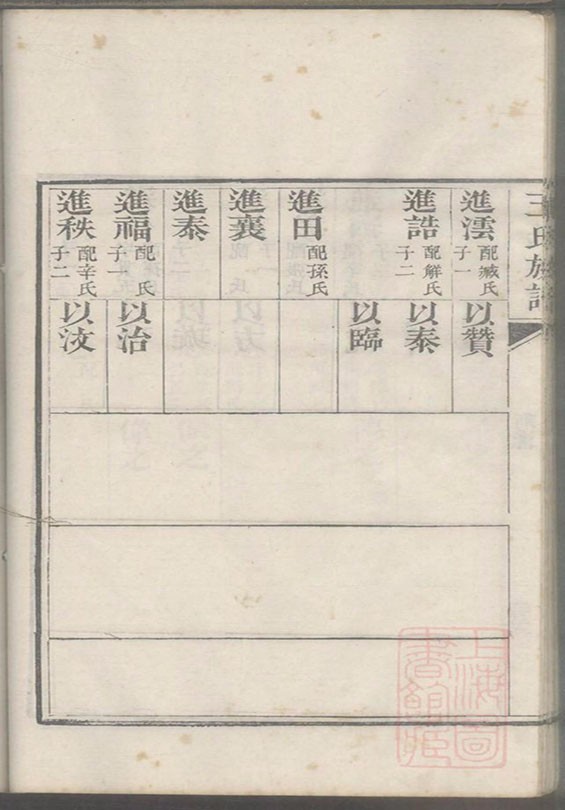 王氏族譜
進澐 配臧氏 子一
進誥 配解氏 子二
進田 配孫氏
進襄 配 氏
進泰
進福 配 氏 子一
進秩 配辛氏 子二
以贊
以泰
以臨
以治
以汶
上海圖書館藏